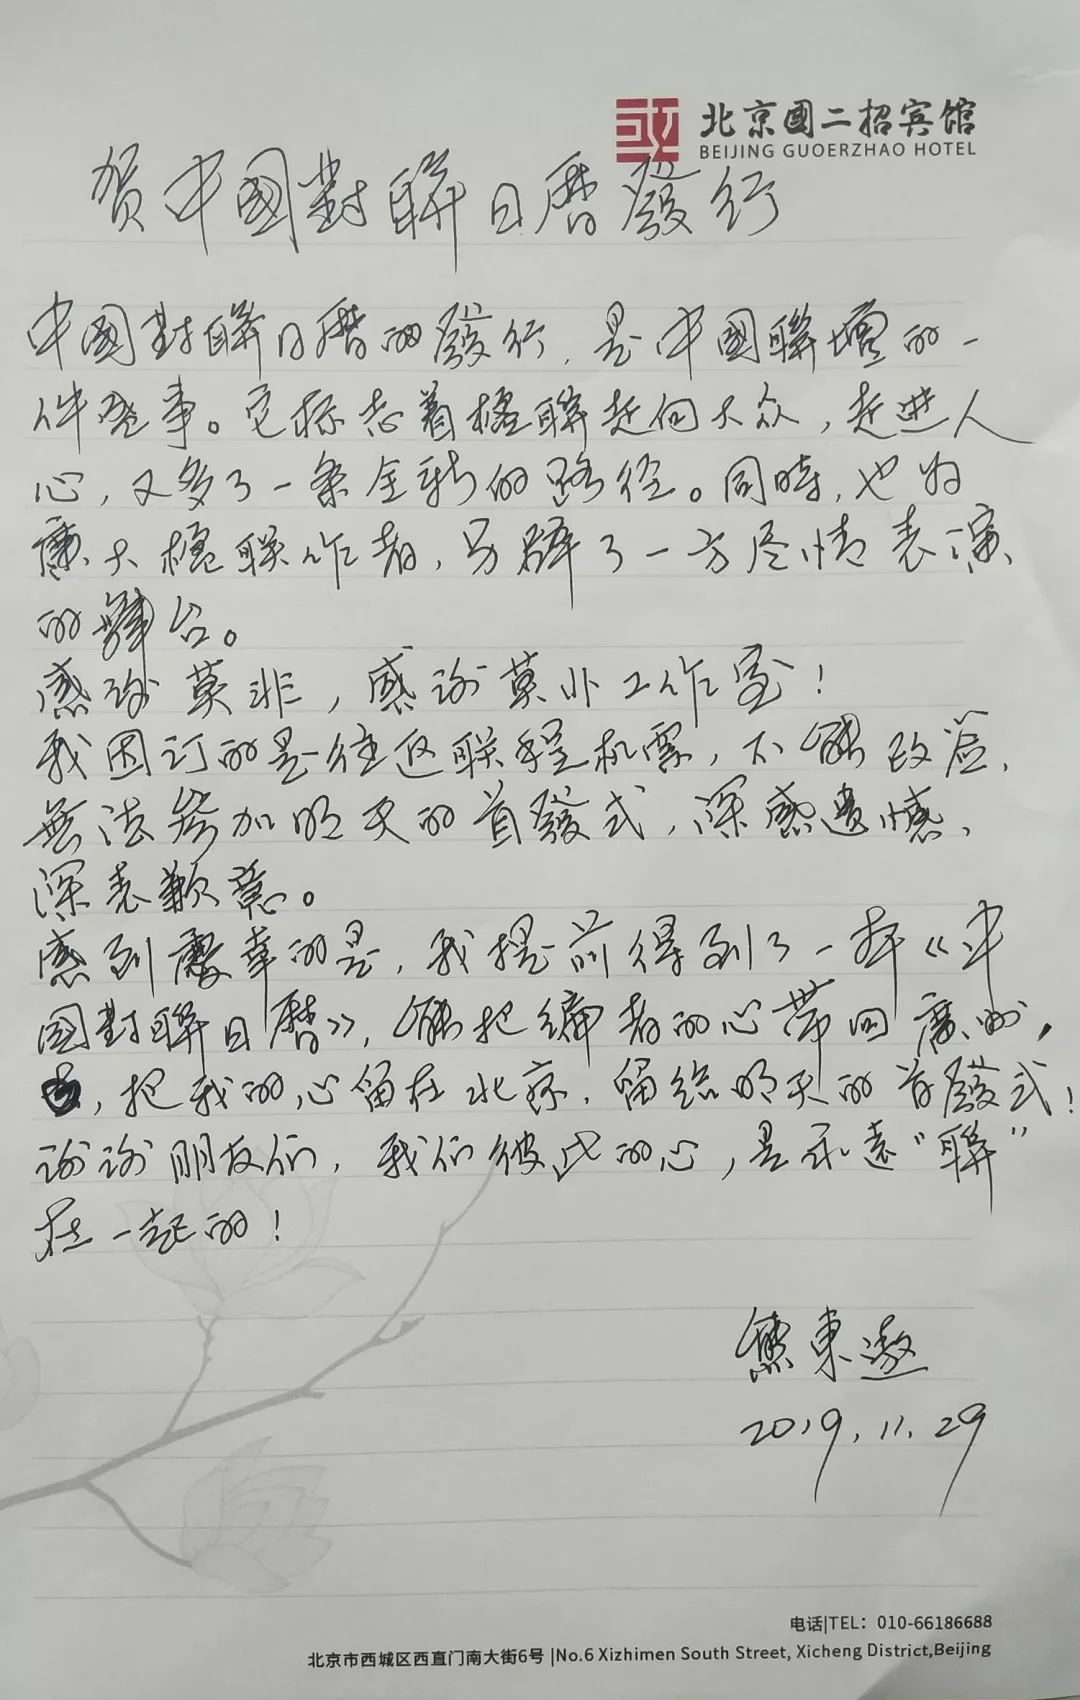 北京國二招宾馆
BEIJING GUOERZHAO HOTEL
贺中國對聯日曆發行
中國對聯日曆的發行，是中國聯壇的一
件盛事。它标志着楹聯走向大众，走进人
心，又多了一条全新的路径。同時，也为
廣大楹联作者，另辟了一方尽情表演
的舞台。
感谢莫非，感谢莫非工作室！
我因订的是往返联程机票，不能改签，
無法参加明天的首發式，深感遗憾，
深表歉意。
感到慶幸的是，我提前得到了一本《中
國對聯日曆》，能把编者的心带回廣州，
，把我的心留在北京，留给明天的首發式！
谢谢朋友们，我们彼此的心，是永遠“聯”
在一起的！
熊東遨
2019.11.29
电话|TEL：010-66186688
北京市西城区西直门南大街6号 |No.6 Xizhimen South Street, Xicheng District,Beijing